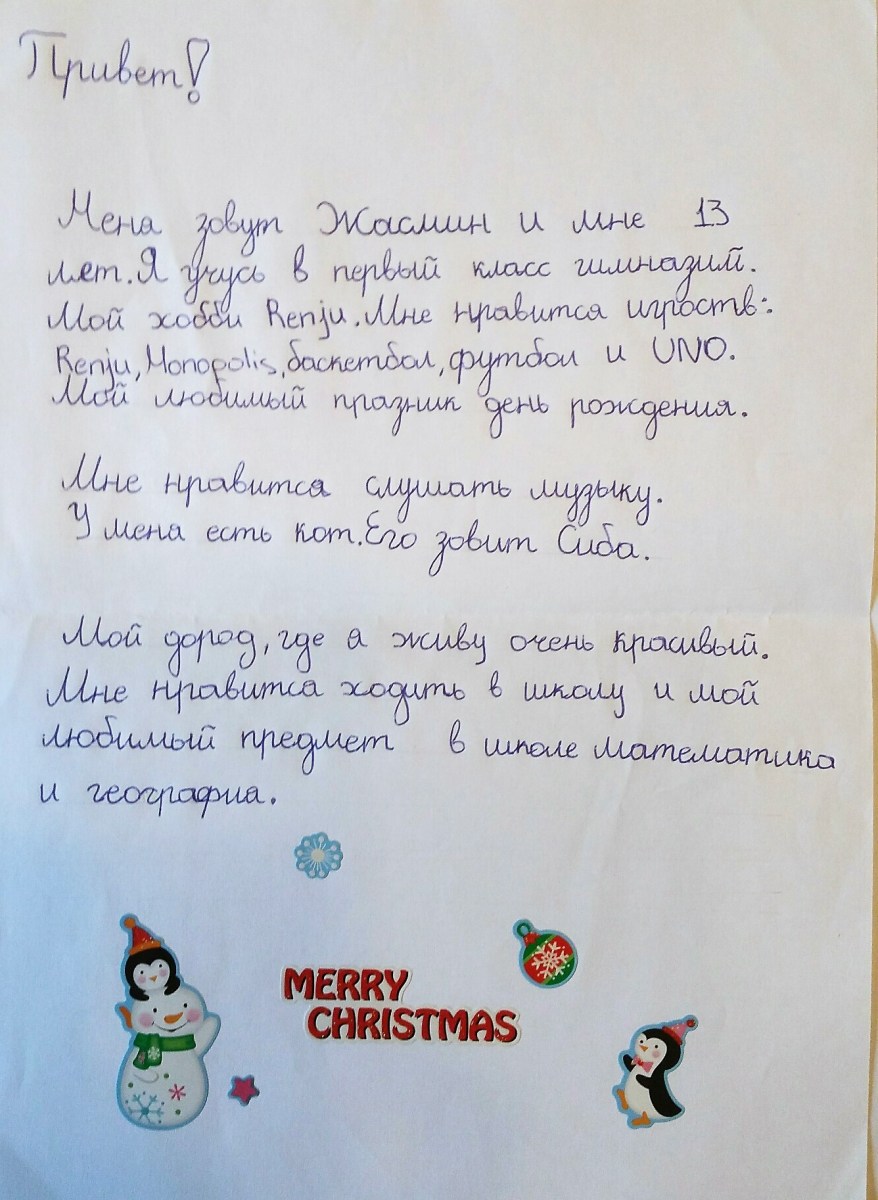 Привет!
Мена зовут Жасмин и мне 13
лет. Я учусь в первый класс гимназий.
Мой хобби Renju. Мне нравится игроств:
Renju, Monopolis, баскетбол, футбол и UNO.
Мой любимый празник день рождения.
Мне нравится слушать музыку.
У мена есть кот. Его зовит Сиба.
Мой дород, где я живу очень красивый.
Мне нравитса ходить в школу и мой
любимый предмет в школе математика
и географиа.
MERRY
CHRISTMAS